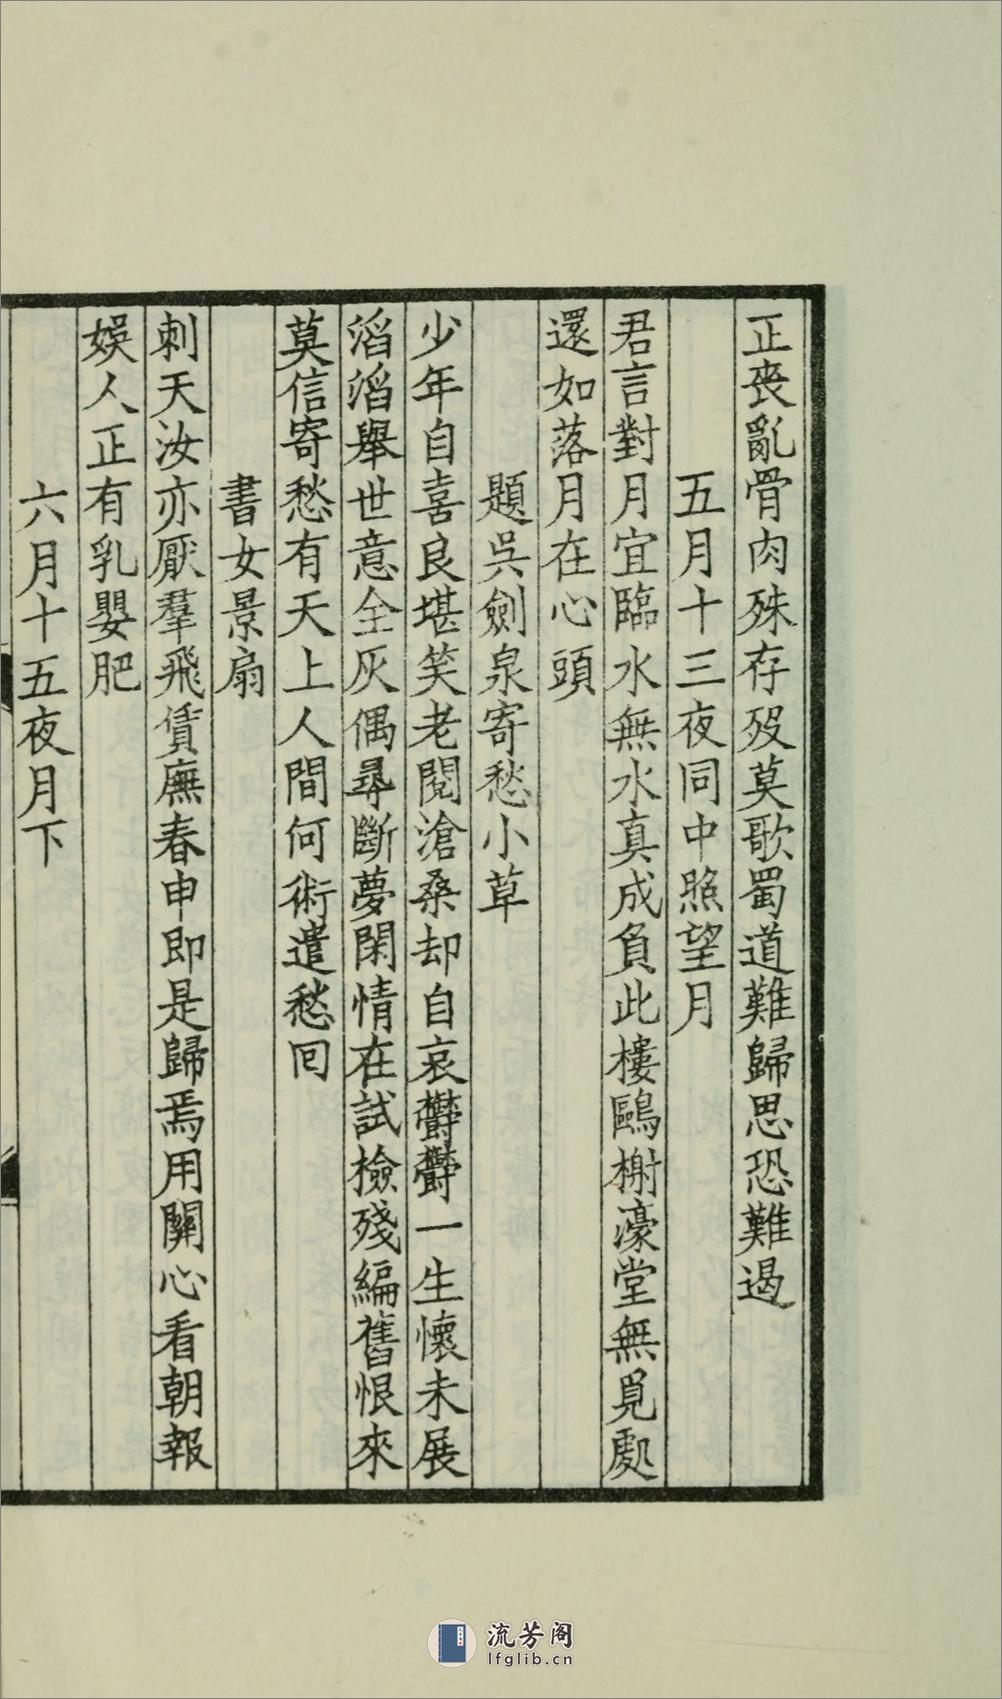 正喪亂骨肉殊存歿莫歌蜀道難歸思恐難遏
五月十三夜同中照望月
君言對月宜臨水無水真成負此樓鷗榭濠堂無覓處
還如落月在心頭
題吳劍泉寄愁小草
少年自喜良堪笑老閱滄桑却自哀欝欝一生懷未展
滔滔舉世意全灰偶尋斷夢閑情在試檢殘編舊恨來
莫信寄愁有天上人間何術遣愁回
書女景扇
刺天汝亦厭羣飛賃廡春申即是歸焉用關心看朝報
娛人正有乳嬰肥
六月十五夜月下
流芳阁
lfglib.cn